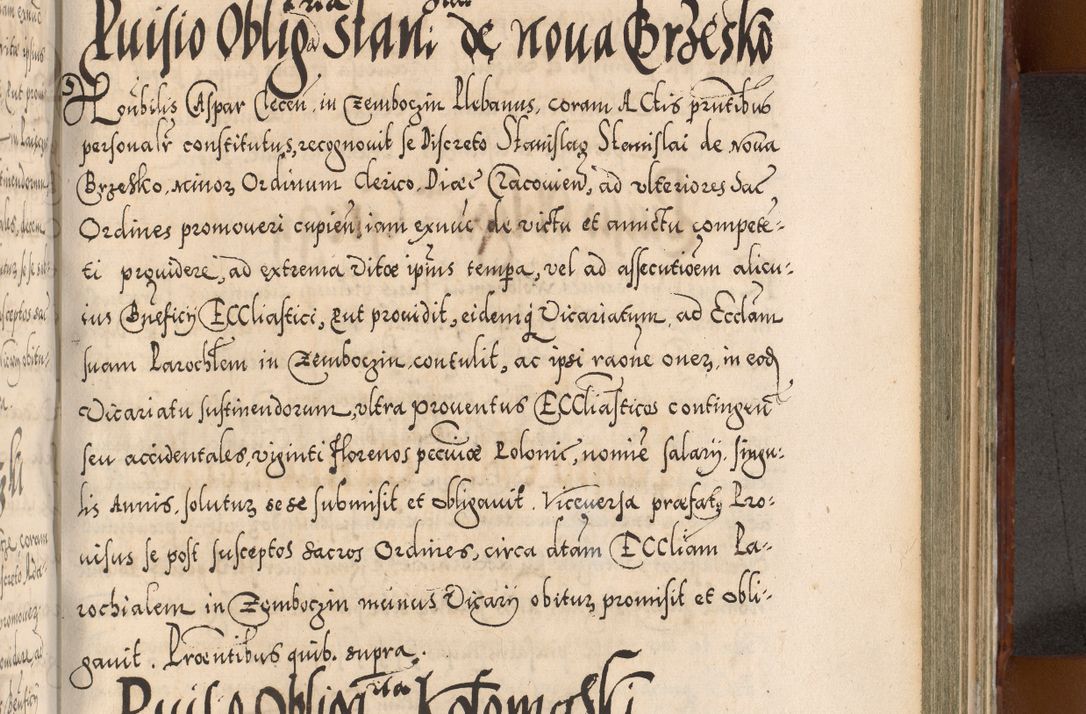 Puisio Obligaria Stani de Noua Brzesko
Honbilis Caspar Cleceñ. in Zemboczin Plebanus, coram Actis pñtibus
personalr constitutus, recognouit se Discreto Stanislao Stanislai de Noua
Brzesko, Minorz Ordinum Clerico, Diæc Cracouieñ, ad vlteriores Sac
Ordines promoueri cupieñ, iam exnuc de victu et amictu compete-
ti prouidere, ad extrema vitæ ipius tempa, vel ad assecutioem alicu-
ius Bneficij ECCliastici, put prouidit, eidemq Vicariatum, ad Eccliam
suam Parochlem in Zemboczin contulit, ac ipsi raone onerz, in eod
Vicariatu sustinendorum, vltra prouentus ECCliasticos contingen
seu accidentales, viginti florenos pecuniæ Polonic, nomie salarij, singu-
lis Annis, soluturz sese submisit et obligauit. Viceuersa præfatus Pro-
uisus se post susceptos Sacros Ordines, circa dtam ECCliam Pa-
rochialem in Zemboczin munus Vicarij obiturz promisit et obli-
gauit. Præsentibus quib. supra.
Puisio Obligaria